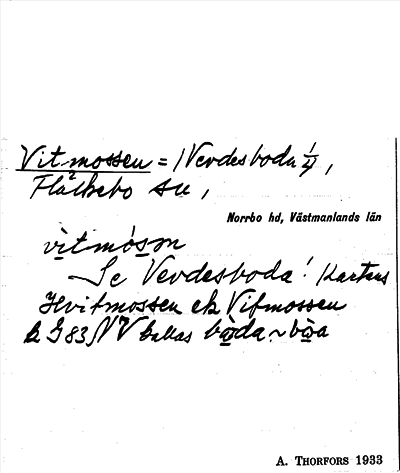 Vitmossen = Verdesboda 1/4,
Fläckebo sn,
Norrbo hd, Västmanlands län
Se Verdesboda! Kartans
Hvitmossen ek Vitmossen
kallas
A. THORFORS 1933